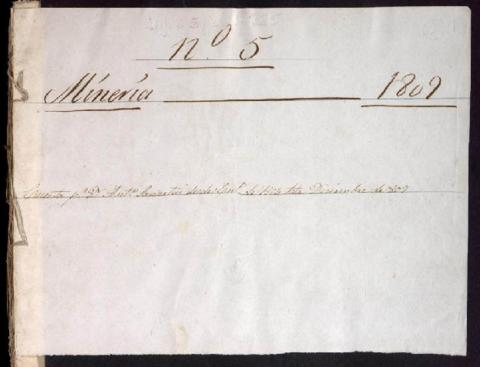 nº 5
Minería 1809
Cuenta pª Dn Antº desde de hta Diciembre de 809